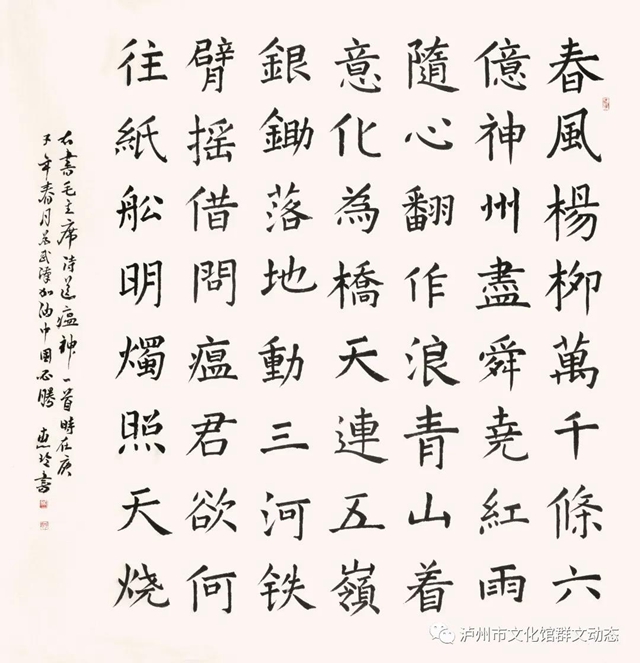 春風楊柳萬千條六
億神州盡舜堯紅雨
隨心翻作浪青山着
意化為橋天連五嶺
銀鋤落地動三河铁
臂摇借問瘟君欲何
往紙舩明燭照天烧
右書毛主席诗送瘟神一首時在庚
子年春月为武漢加油中國必勝 惠玲書
泸州市文化馆群文动态